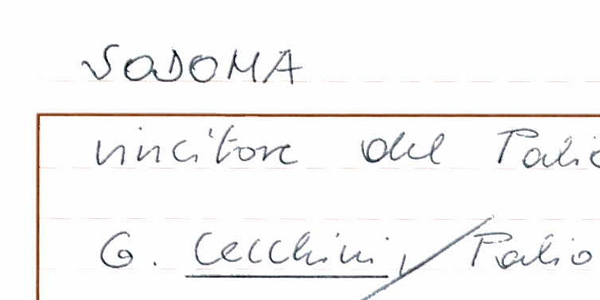 SODOMA
vincitore del Palio
G. Cecchini, Palio